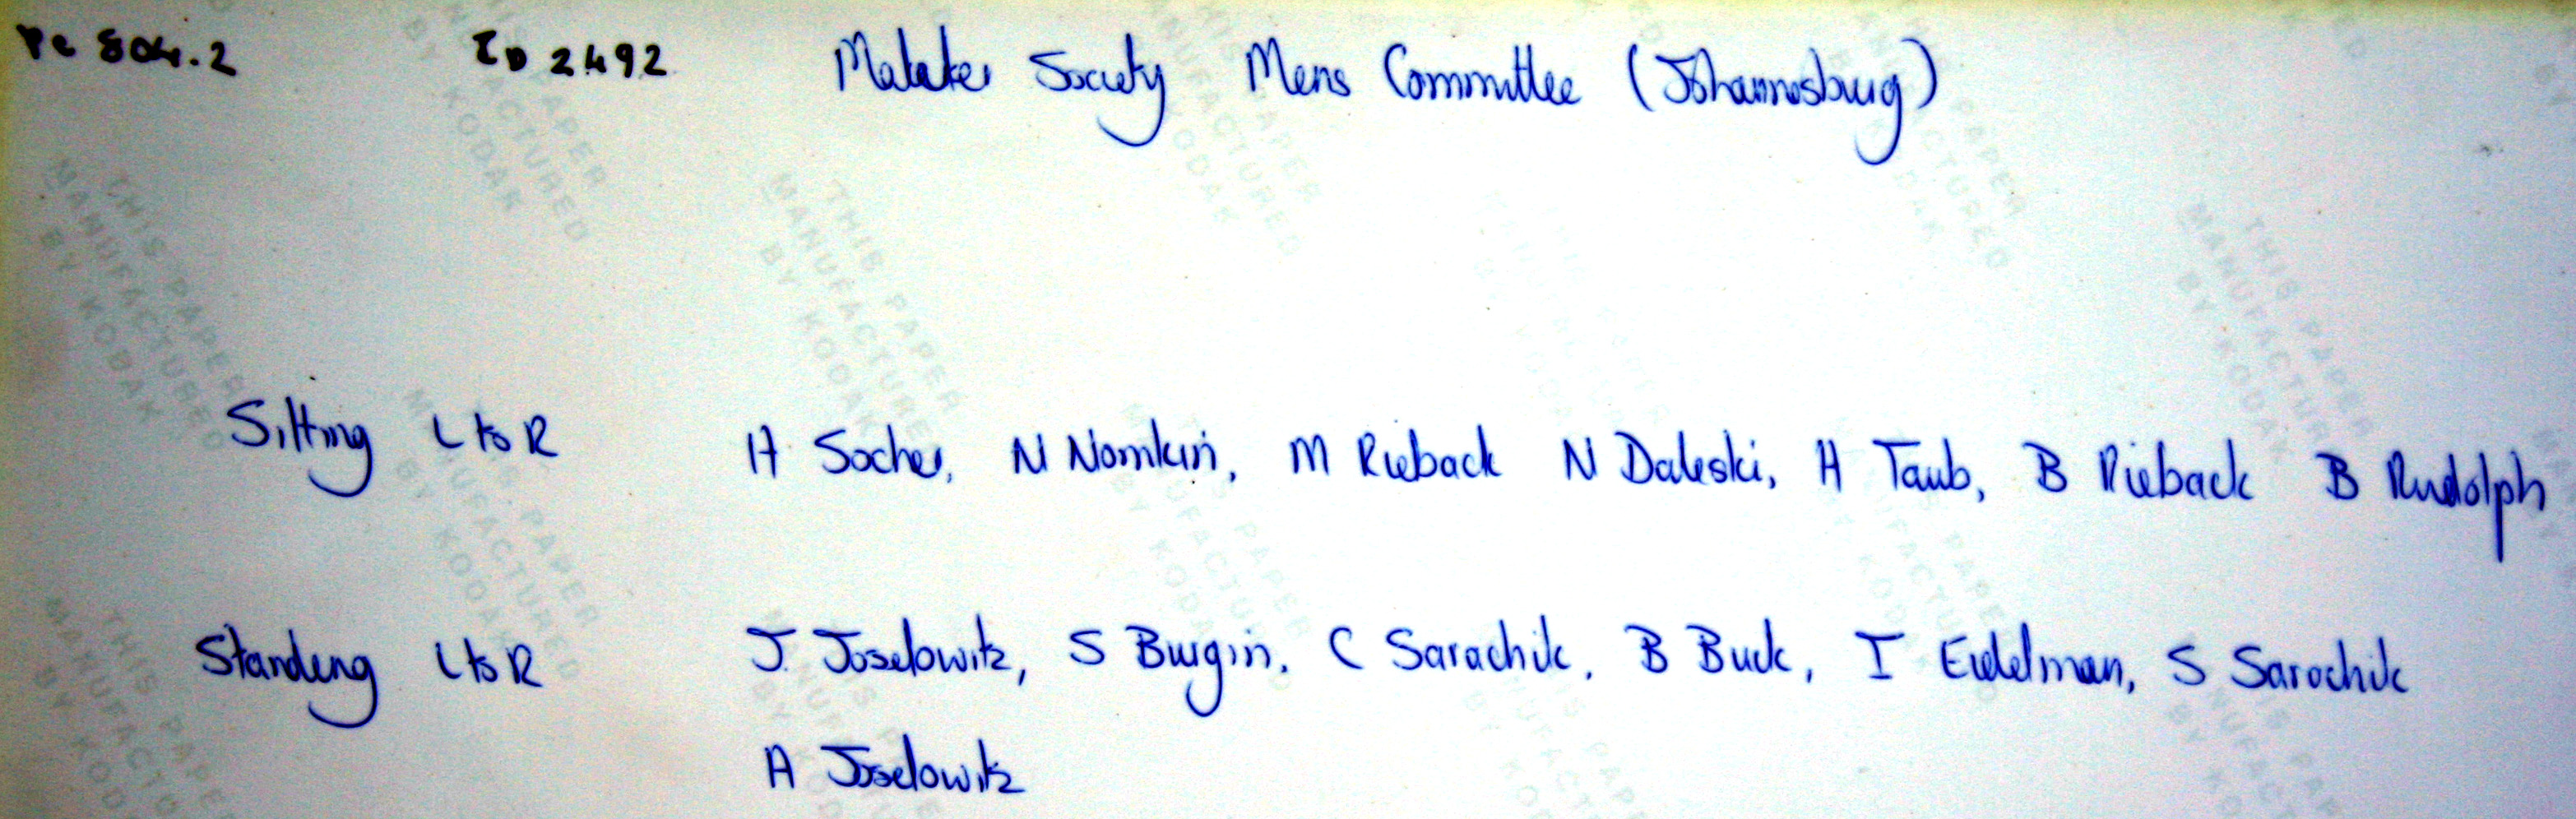 Pc 804.2 ID 2492 Malater Society Mens Committee (Johannesburg)
Sitting L to R H Socher, N Nomkin, M Rieback N Daleski, H Taub, B Rieback B Rudolph
Standing L to R J. Joselowitz, S Burgin, C Sarachik, B Buck, I Eidelman, S Sarachik
A Joselowitz
THIS PAPER
MANUFACTURED
BY KODAK